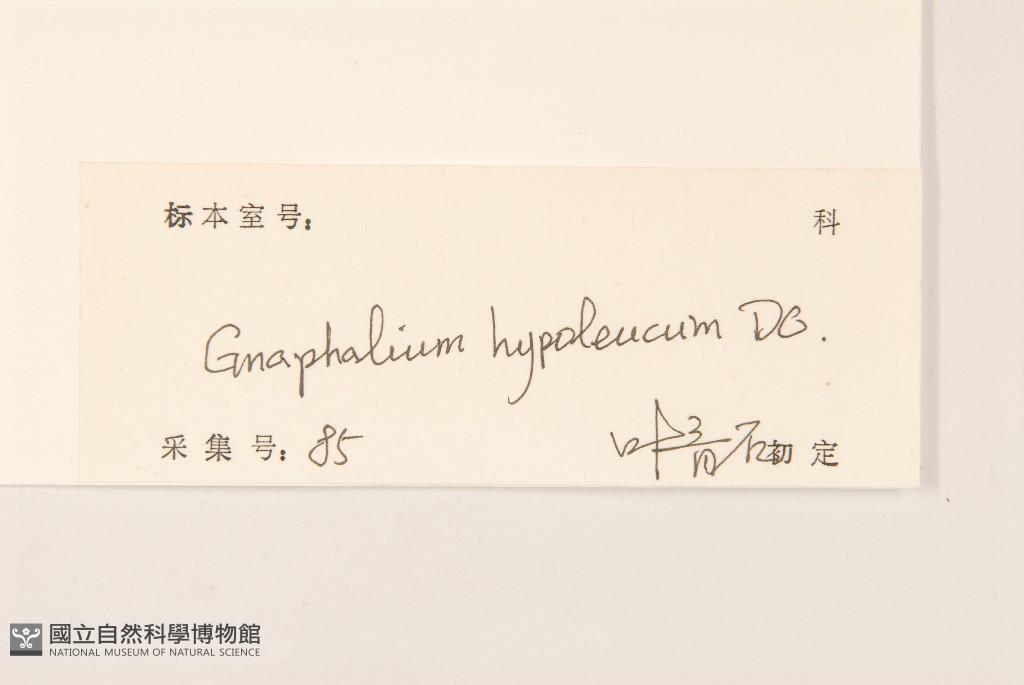 标本室号： 科
Gnaphalium hypoleucum DC.
采集号：85 叶育石初定
國立自然科學博物館
NATIONAL MUSEUM OF NATURAL SCIENCE